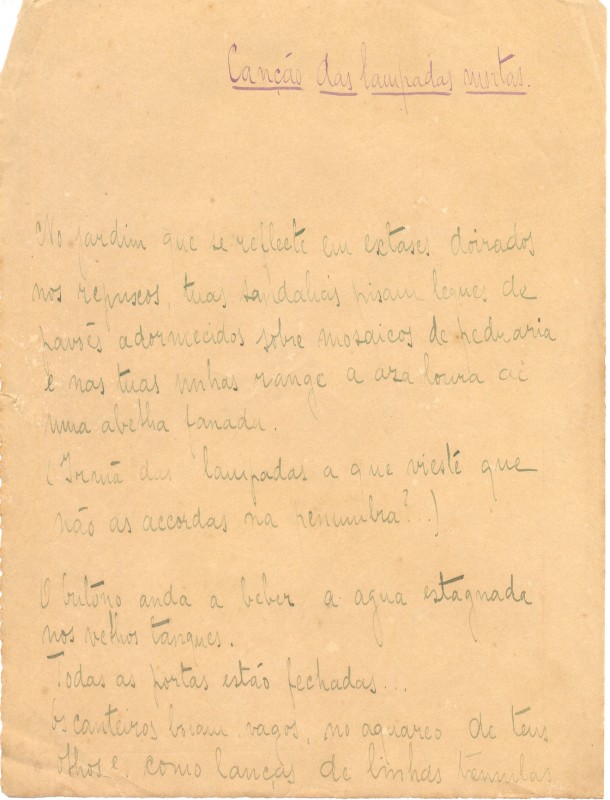 Canção das lampadas mortas.
No jardim que se reflecte em extases doirados
nos repuxos, tuas sandalias pisam leques de
pavões adormecidos sobre mosaicos de pedraria
e nas tuas unhas range a aza loura de
uma abelha fanada.
(Irmã das lampadas a que vieste que
não as accordas na penumbra?..)
O outono anda a beber a agua estagnada
nos velhos tanques.
Todas as portas estão fechadas...
Os canteiros boiam vagos, no aquareo de teus
olhos e, como lanças de linhas tremulas